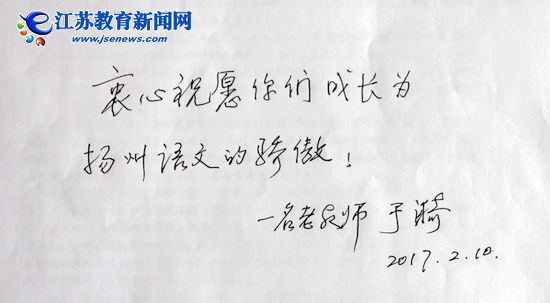 江苏教育新闻网
www.jsenews.com
衷心祝愿你们成长为
扬州语文的骄傲！
一名老教师 于漪
2017.2.10.